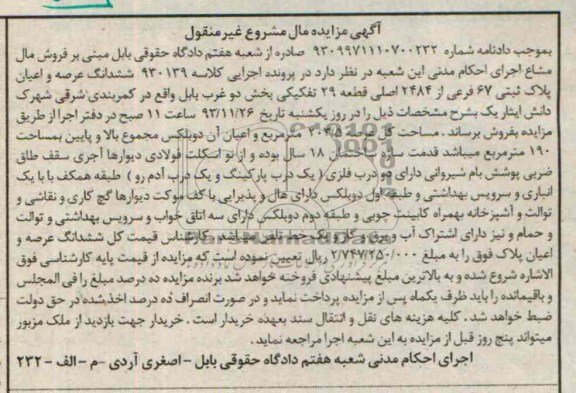 آگهی مزایده مال مشروع غیر منقول
بموجب دادنامه شماره ۹۳۰۹۹۷۱۱۱۰۷۰۰۲۳۲ صادره از شعبه هفتم دادگاه حقوقی بابل مبنی بر فروش مال
مشاع اجرای احکام مدنی این شعبه در نظر دارد در پرونده اجرایی کلاسه ۹۳۰۱۳۹ ششدانگ عرصه و اعیان
پلاک ثبتی ۶۷ فرعی از ۲۴۸۴ اصلی قطعه ۲۹ تفکیکی بخش دو غرب بابل واقع در کمربندی شرقی شهرک
دانش ایثار یک بشرح مشخصات ذیل را در روز یکشنبه تاریخ ۹۳/۱۱/۲۶ ساعت ۱۱ صبح در دفتر اجرا از طریق
مزایده بفروش برساند . مساحت کل مترمربع و اعیان آن دوبلکس مجموع بالا و پایین بمساحت
۱۹۰ مترمربع میباشد قدمت سازه ساختمان ۱۸ سال بوده و از نو اسکلت فولادی دیوارها آجری سقف طاق
ضربی پوشش بام شیروانی دارای دو درب فلزی ( یک درب پارکینگ و یک درب آدم رو ) طبقه همکف با با یک
انباری و سرویس بهداشتی و طبقه اول دوبلکس دارای هال و پذیرایی با کف موکت دیوارها گچ کاری و نقاشی و
توالت و آشپزخانه بهمراه کابینت چوبی و طبقه دوم دوبلکس دارای سه اتاق خواب و سرویس بهداشتی و توالت
و حمام و نیز دارای اشتراک آب و برق و گاز و یک خط تلفن میباشد . کارشناس قیمت کل ششدانگ عرصه و
اعیان پلاک فوق را به مبلغ ۲/۷۴۷/۲۵۰/۰۰۰ ریال تعیین نموده است که مزایده از قیمت پایه کارشناسی فوق
الاشاره شروع شده و به بالاترین مبلغ پیشنهادی فروخته خواهد شد برنده مزایده ده درصد مبلغ را فی المجلس
و باقیمانده را باید ظرف یکماه پس از مزایده پرداخت نماید و در صورت انصراف ده درصد اخذ شده در حق دولت
ضبط خواهد شد . کلیه هزینه های نقل و انتقال سند بعهده خریدار است . خریدار جهت بازدید از ملک مزبور
میتواند پنج روز قبل از مزایده به این شعبه اجرا مراجعه نماید .
اجرای احکام مدنی شعبه هفتم دادگاه حقوقی بابل - اصغری آردی - م - الف - ۲۳۲